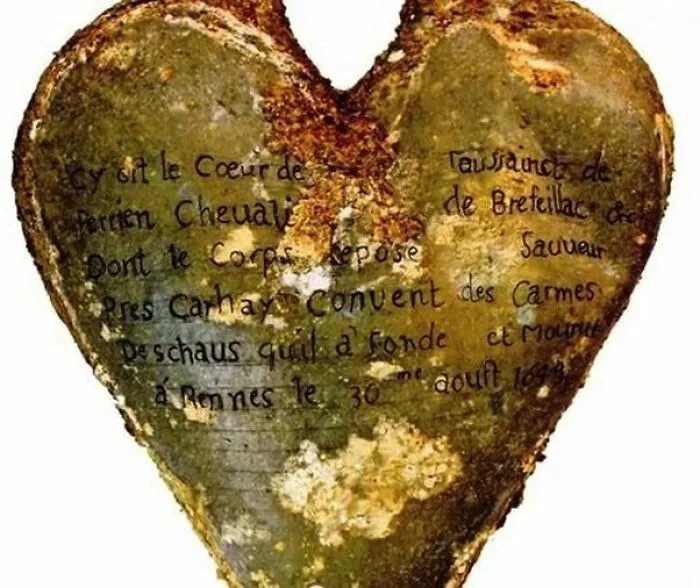 Cy Git le Coeur de Toussainct de
Perrien Cheuali de Brefeillac
Dont le Corps repose Sauueur
Pres Carhay Conuent des Carmes
Deschaus quil a fonde et Mourut
á Rennes le 30me aoust 1649